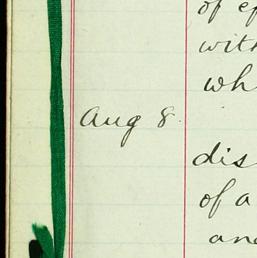 of ef
with
wh
Aug 8.
dis
of a
and